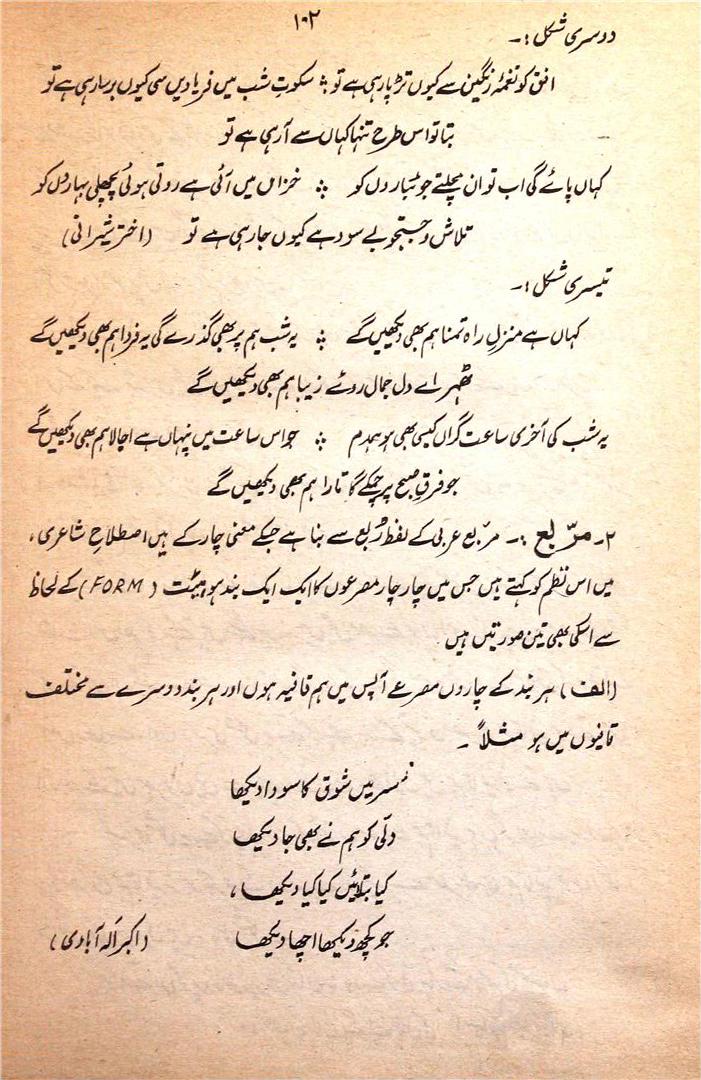 ۱۰۲
دوسری شکل :۔
افق کو نغمۂ رنگیں سے کیوں تڑپا رہی ہے تو ؞ سکوتِ شب میں فریادیں سی کیوں برسا رہی ہے تو
بتا تو اس طرح تنہا کہاں سے آرہی ہے تو
کہاں پائے گی اب تو ان مچلتے جوئباروں کو ؞ خزاں میں آئی ہے روتی ہوئی پچھلی بہاروں کو
تلاش و جستجو بے سود ہے کیوں جارہی ہے تو (اختر شیرانی)
تیسری شکل :۔
کہاں ہے منزلِ راہ تمنا ہم بھی دیکھیں گے ؞ یہ شب ہم پر بھی گذرے گی یہ فردا ہم بھی دیکھیں گے
ٹھہر اے دل جمال روئے زیبا ہم بھی دیکھیں گے
یہ شب کی آخری ساعت گراں کیسی بھی ہو ہمدم ؞ جو اس ساعت میں پنہاں ہے اجالا ہم بھی دیکھیں گے
جو فرقِ صبح پر چمکے گا تارا ہم بھی دیکھیں گے
۲۔ مربّع :۔ مربع عربی کے لفظ رُبع سے بنا ہے جسکے معنی چار کے ہیں اصطلاحِ شاعری،
میں اس نظم کو کہتے ہیں جس میں چار چار مصرعوں کا ایک ایک بند ہو ہیئت (FORM) کے لحاظ
سے اسکی بھی تین صورتیں ہیں
(الف) ہر بند کے چاروں مصرعے آپس میں ہم قافیہ ہوں اور ہر بند دوسرے سے مختلف
قافیوں میں ہو مثلاً ۔
سر میں شوق کا سودا دیکھا
دلّی کو ہم نے بھی جا دیکھا
کیا بتلائیں کیا کیا دیکھا،
جو کچھ دیکھا اچھا دیکھا (اکبر الہ آبادی)